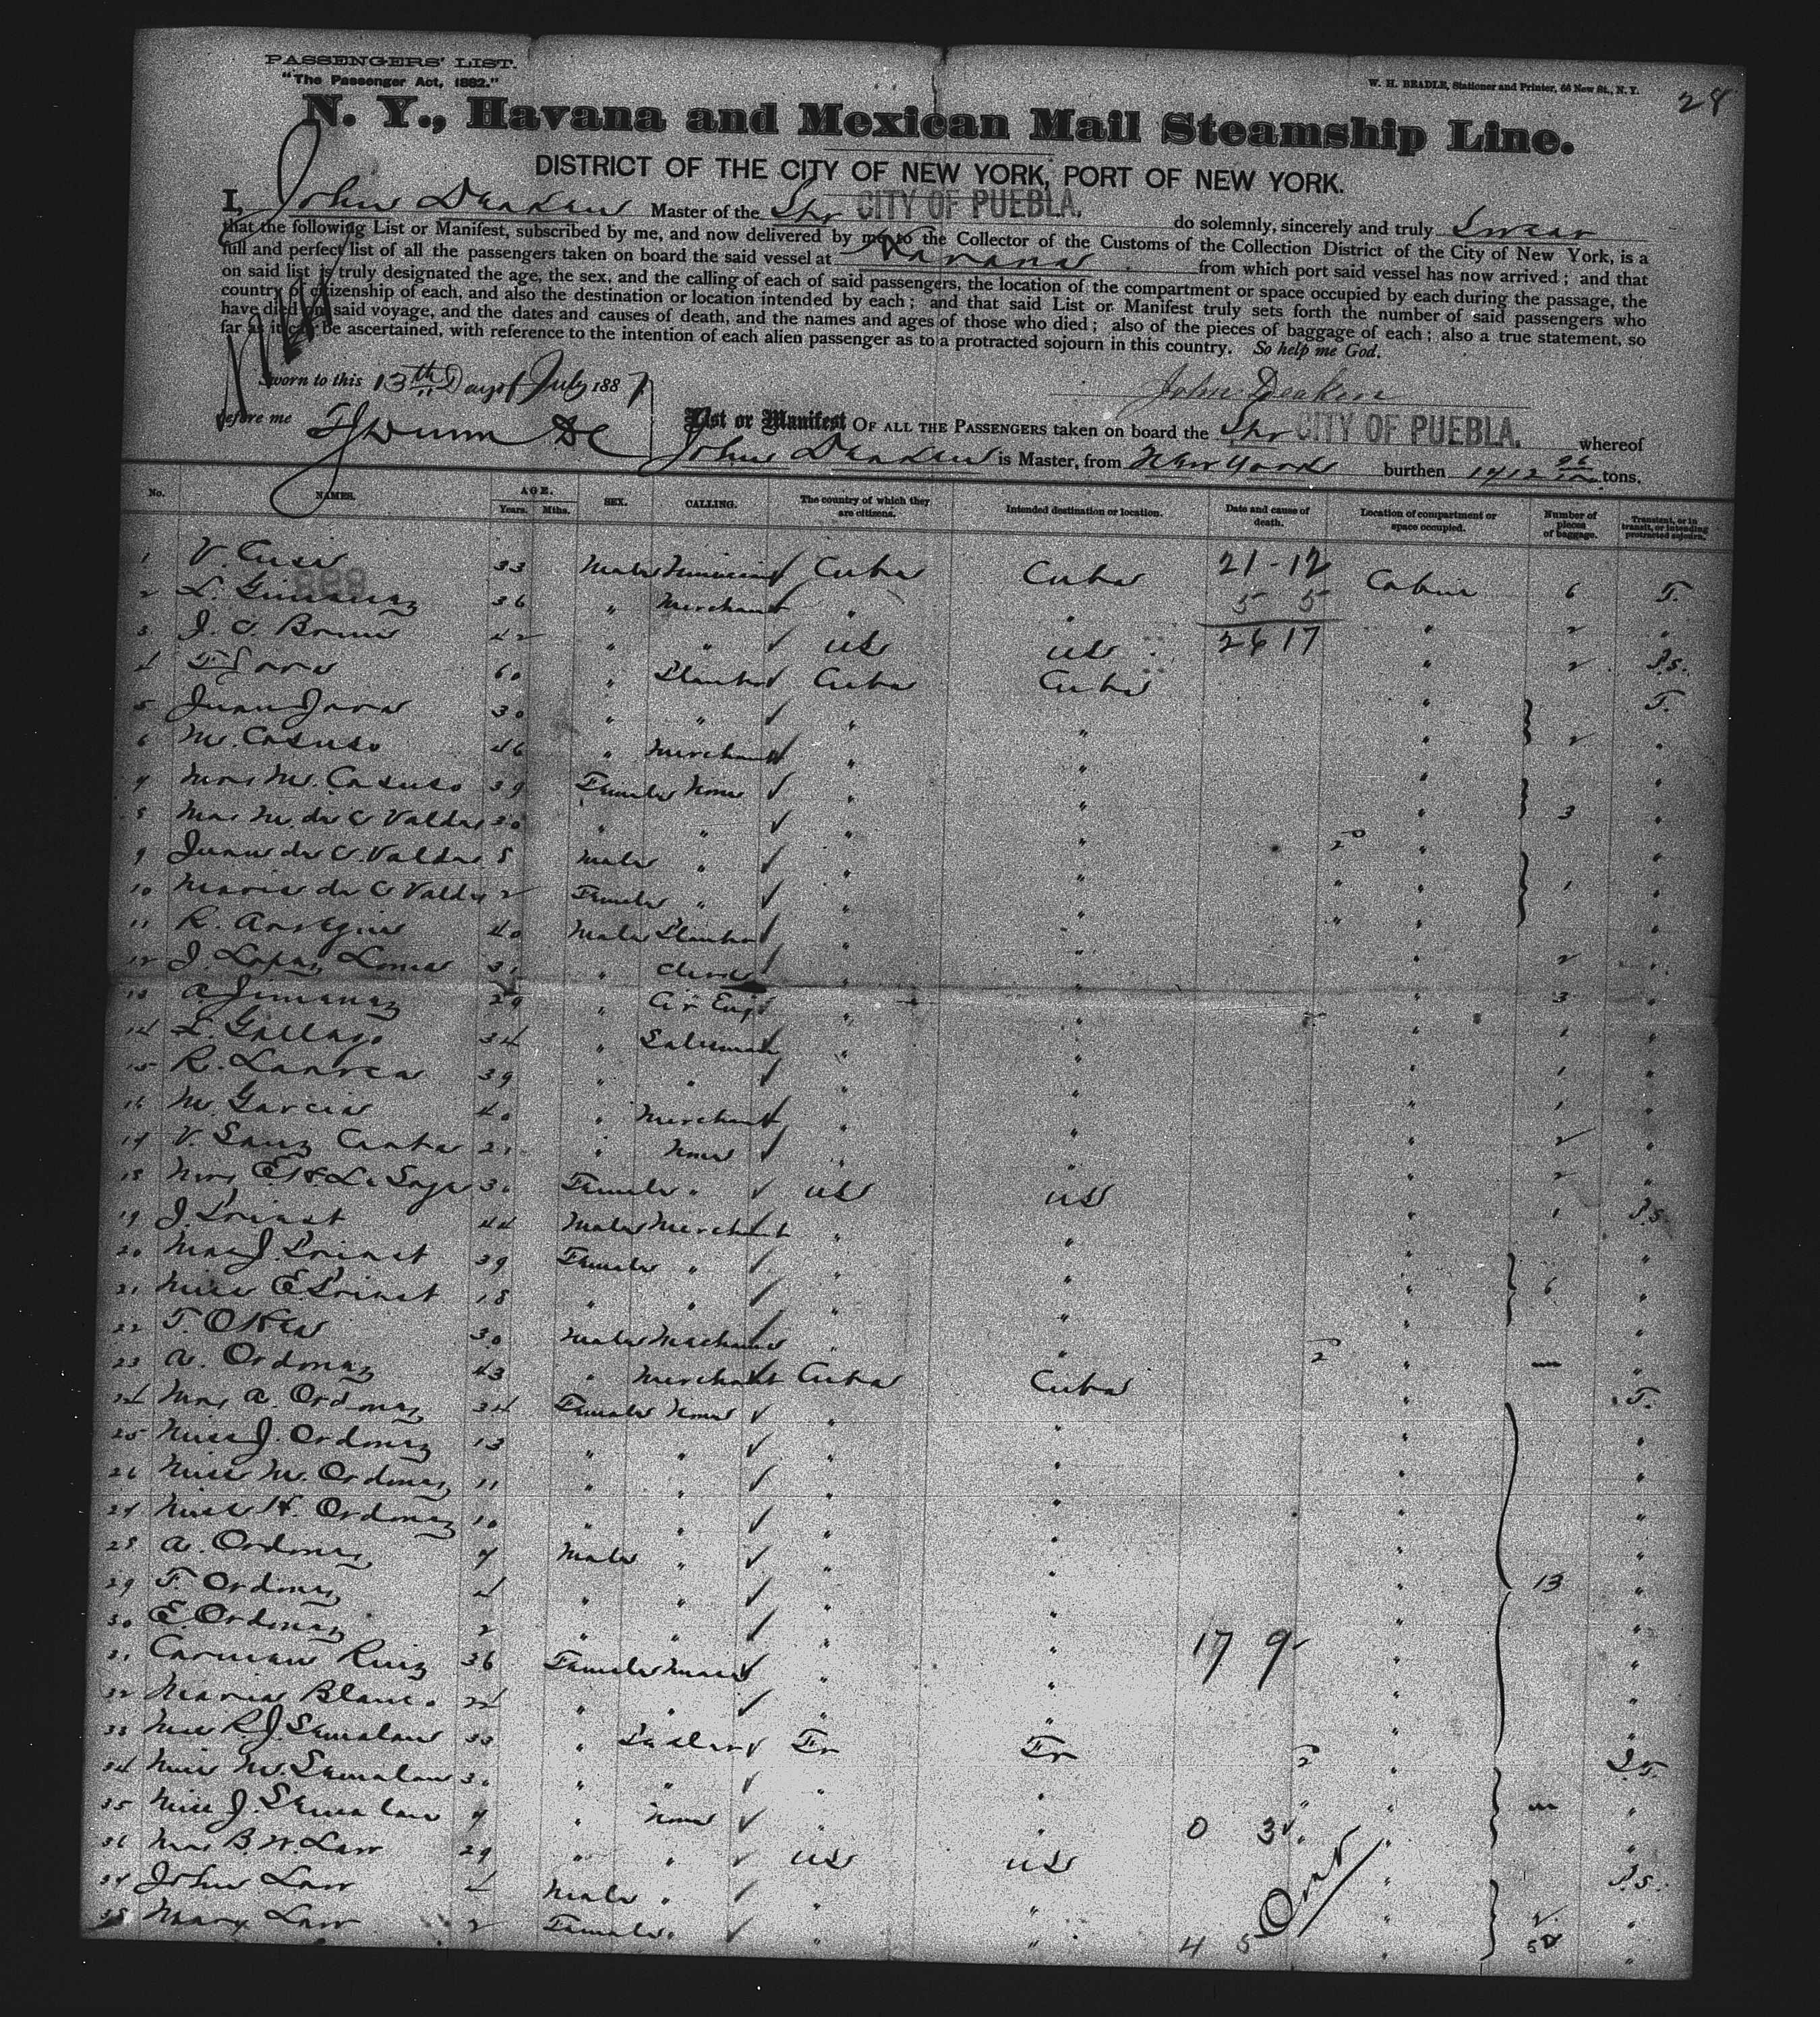 PASSENGERS' LIST.
"The Passenger Act, 1882."
W. H. BEADLE, Stationer and Printer, 66 New St., N. Y.
28
N. Y., Havana and Mexican Mail Steamship Line.
DISTRICT OF THE CITY OF NEW YORK, PORT OF NEW YORK.
I, John Deaken Master of the Shr CITY OF PUEBLA. do solemnly, sincerely and truly Swear
that the following List or Manifest, subscribed by me, and now delivered by me to the Collector of the Customs of the Collection District of the City of New York, is a
full and perfect list of all the passengers taken on board the said vessel at Havana from which port said vessel has now arrived; and that
on said list is truly designated the age, the sex, and the calling of each of said passengers, the location of the compartment or space occupied by each during the passage, the
country of citizenship of each, and also the destination or location intended by each; and that said List or Manifest truly sets forth the number of said passengers who
have died on said voyage, and the dates and causes of death, and the names and ages of those who died; also of the pieces of baggage of each; also a true statement, so
far as it can be ascertained, with reference to the intention of each alien passenger as to a protracted sojourn in this country. So help me God.
Sworn to this 13th Day of July 1887
John Deaken
before me
List or Manifest OF ALL THE PASSENGERS taken on board the Shr CITY OF PUEBLA. whereof
John Deaken is Master, from New York burthen 1712 tons.
No. NAMES. AGE. Years. Mths. SEX. CALLING. The country of which they are citizens. Intended destination or location. Date and cause of death. Location of compartment or space occupied. Number of pieces of baggage. Transient, or in transit, or intending protracted sojourn.
1 V. 33 Male Cuba Cuba 21-12 Cabin 6 T.
2 L. Gimenez 36 " Merchant " " 5 5 " 2 "
3 J. C. 42 " " US US 26 17 " 2 P.S.
4 F Jova 60 " Planter Cuba Cuba " T.
5 Juan Jova 30 " " " " " 2 "
6 M. Casuso 46 " Merchant " " " "
7 Mrs M. Casuso 39 Female None " " " 3 "
8 Mrs M. de C Valdes 20 " " " " " "
9 Juan de C. Valdes 5 Male " " " " 1 "
10 Maria de C Valdes 2 Female " " " " "
11 R. 40 Male Planter " " " 2 "
12 J. Lopez " Clerk " " " 3 "
13 A Jimenez 29 " Civ Eng " " " 1 "
14 L. Gallego 34 " Salesman " " " 1 "
15 R. 39 " " " " " 1 "
16 M. Garcia 40 " Merchant " " " 2 "
17 V. Sanz " None " " " 2 "
18 Mrs Female " US US " 1 P.S.
19 J. Priest 44 Male Merchant " " " "
20 Mrs J. Priest 39 Female " " " " 6 "
21 Miss E. Priest 18 " " " " " "
22 T. 30 Male " " " — "
23 A. Ordonez 43 " Merchant Cuba Cuba " T.
24 Mrs A. Ordonez 34 Female None " " " "
25 Miss J. Ordonez 13 " " " " " "
26 Miss M. Ordonez 11 " " " " " "
27 Miss H. Ordonez 10 " " " " " "
28 A. Ordonez 7 Male " " " " 13 "
29 F. Ordonez 4 " " " " " "
30 E. Ordonez 2 " " " " " "
31 Carmen Ruiz 36 Female " " 17 9 " "
32 Maria Blanco " " " " " "
33 " Fr Fr "
34 Miss M. " " " " " "
35 Miss J. 7 " None " " 0 3 " "
36 Mrs B. W. Law 29 " " US US " P.S.
37 John Law 4 Male " " " " 2 "
38 Mary Law 2 Female " " " 4 5 " "